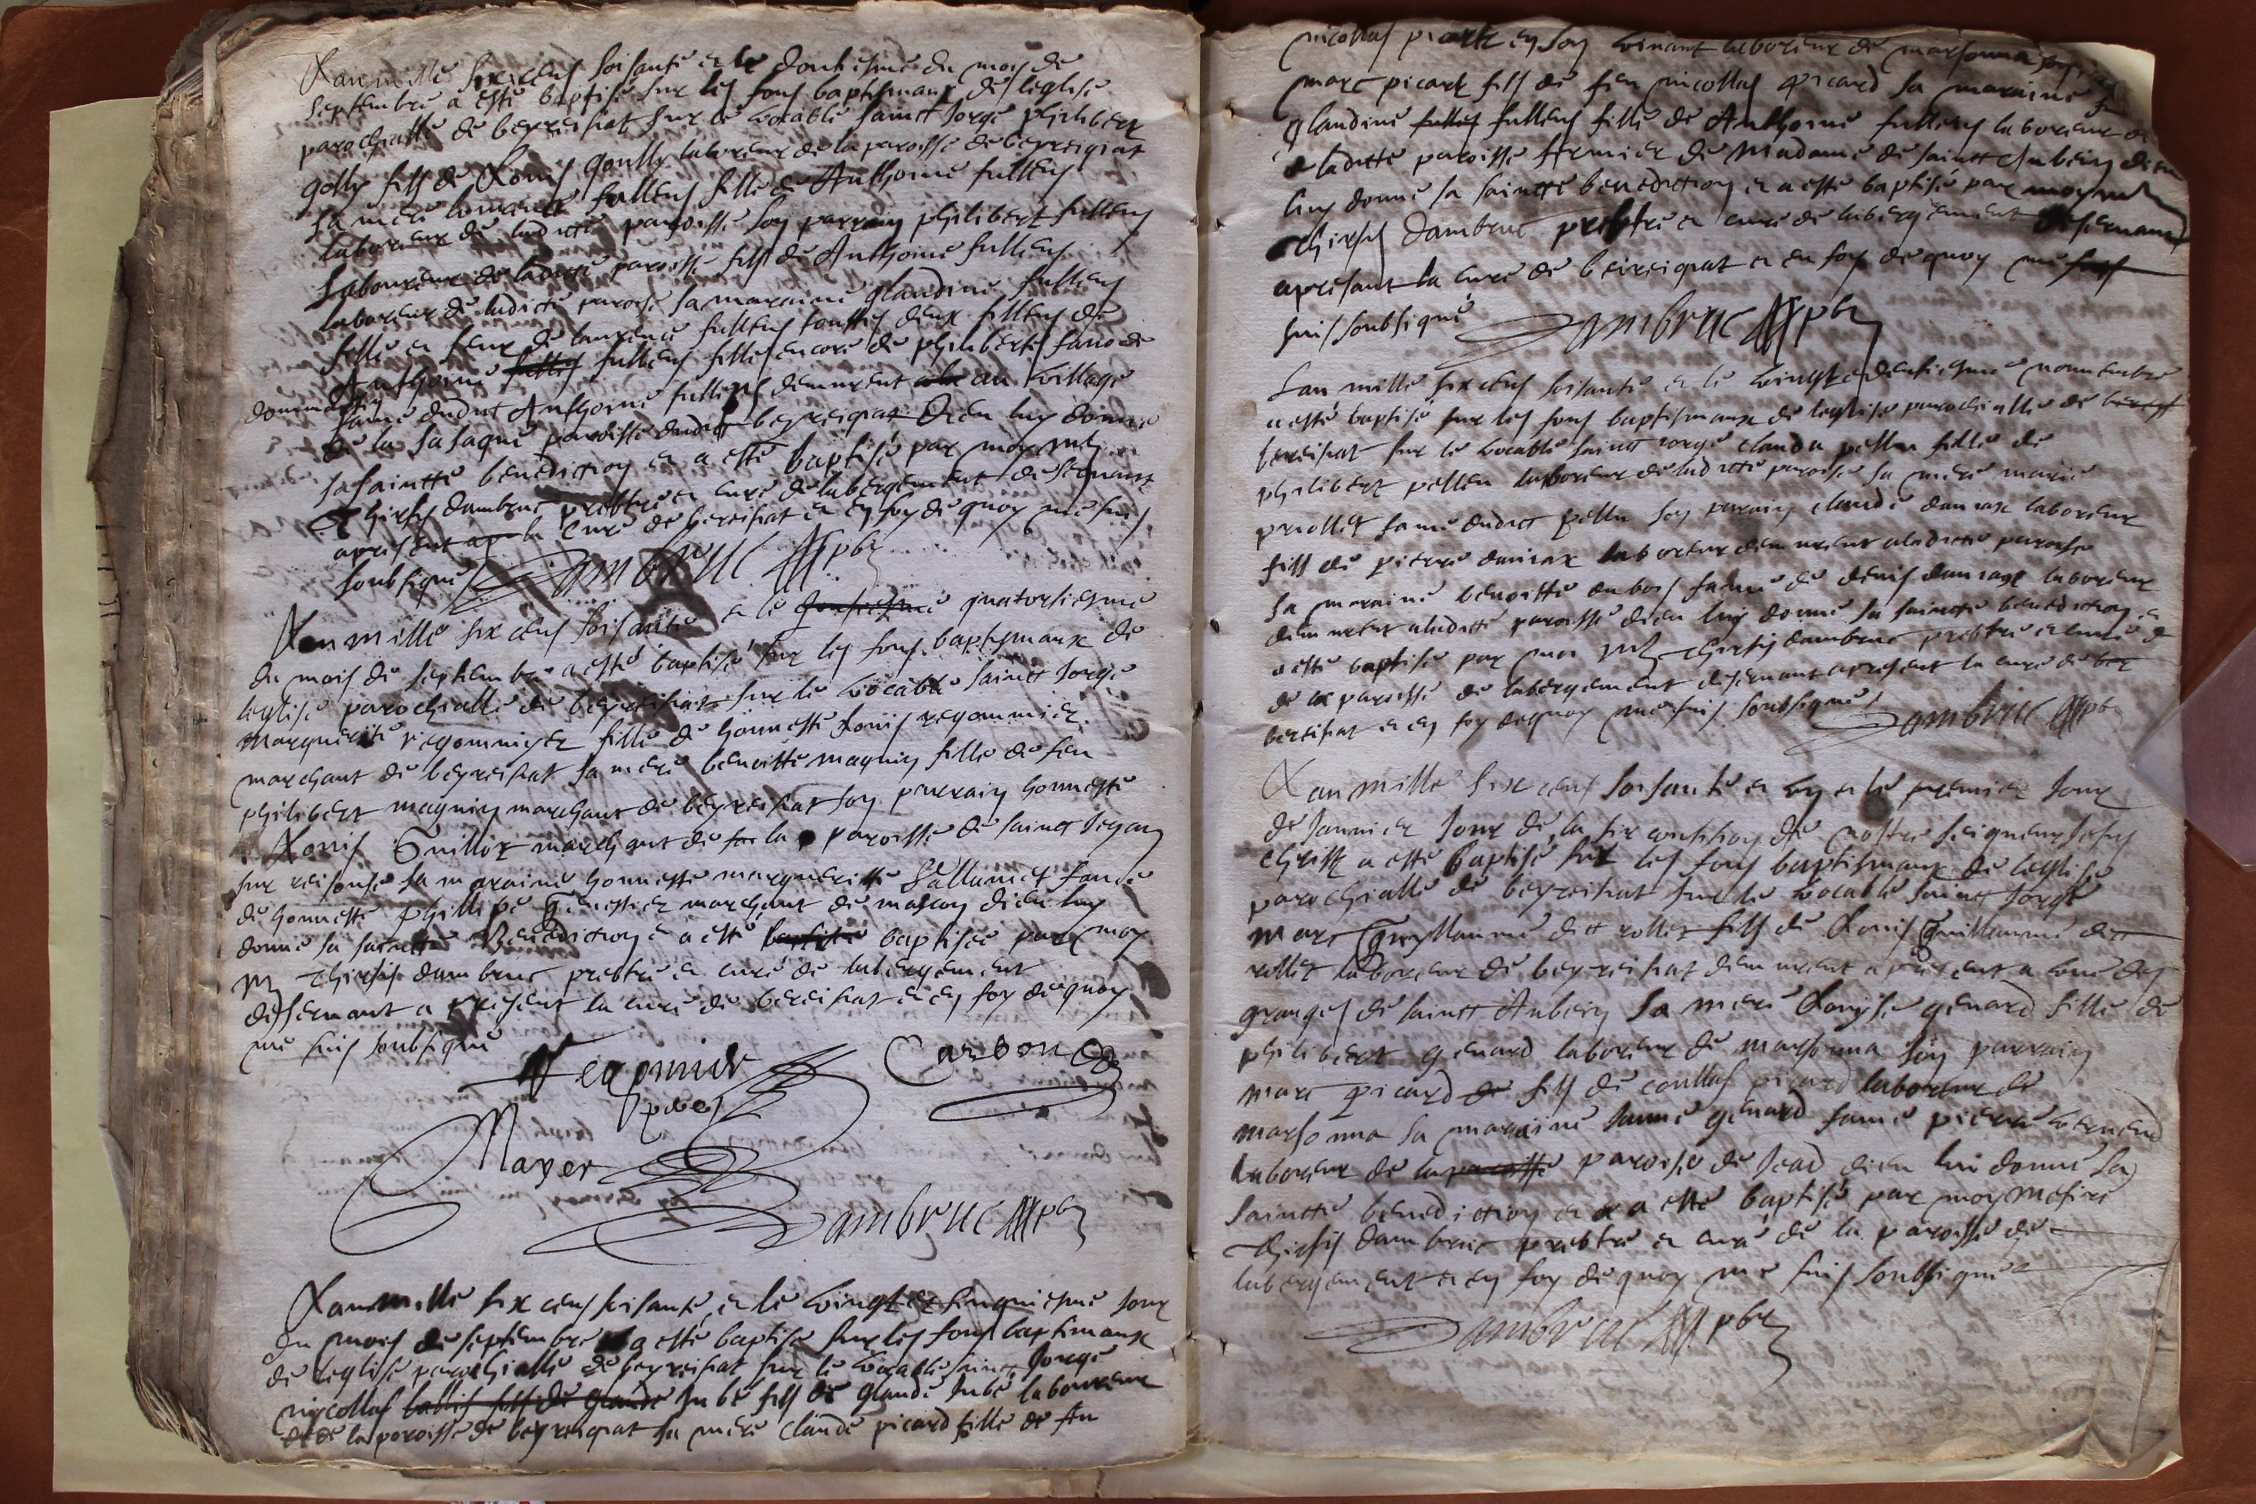 Lan mille six cens soisante et le douziesme du mois de
septembre a esté baptisé sur les fons baptismaux de leglise
parochialle de beyreisiat sur le vocable sainct Jorge philibert
golly fils de Louis goully laboreur de la paroisse de beyreigiat
sa mere laurence fullens fille de Anthoine fullens
laboreur de ladicte paroisse son parrain philibert fullens
laboureur de ladicte paroisse fils de Anthoine fullens
laboreur de ladicte paroise sa maraine glaudine fullens
fille et seur de laurence fullens touttes deux filles de
Anthoine fullens filles encore de philiberte
fame dudict Anthoine fullens demurent au village
de la paroisse dudict beyreigiat Dieu luy donne
sa saincte benediction et a esté baptisé par moy
Thirsis dambruc prebtre et curé de labergement desernant
apresent la cure de bereisiat et en foy de quoy me suis
soubsigné Dambruc pbr
Lan mille six cens soisante et le quatorsiesme
du mois de septembre a esté baptisé sur les fons baptismaux de
leglise parochialle de beyreisiat sur le vocable sainct Jorge
Marguerite regomnier fille de honneste Louis regommier
marchant de beyreisiat sa mere benoitte magnin fille de feu
philibert magnin marchant de beyreisiat son parrain honneste
Louis Guillot marchant de la paroisse de sainct Jegan
sur reisouse sa maraine honneste margueritte fame
de honneste phillipe marchant de mascon dieu luy
donne sa saincte Benediction et a esté baptisée par moy
Thirsis dambruc prebtre et curé de labergement
desernant a present la cure de bereisiat et en foy de quoy
me suis soubsigné
Regomnier Carbon
Mayer
Dambruc pbr
Lan mille six cens soisante et le vingt et sinquiesme Jour
du mois de septembre a esté baptise sur les fons baptimaux
de leglise parochialle de beyreisiat sur le vocable sainct Jorge
nycollas Jubé fils de glaude Jubé laboureur
de la paroisse de beyreigiat sa mere Claude picard fille de
nicollas picard en son vivant laboreur de marsonna
marc picard fils de feu nicollas picard sa maraine
glaudine fullens fille de Anthoine fullens laboreur
ladicte paroisse fermier de Madame de sainct Aubein dieu
luy donne sa saincte benediction et a esté baptisé par moy
Thirsis dambruc prebtre et curé de labergement desernant
apresant la cure de beireigiat et en foy de quoy me
suis soubsigné Dambruc pbr
Lan mille six cens soisante et le vingt et deusiesme nouembre
a esté baptisé sur les fons baptismaux de leglise parochialle de
bereisiat sur le vocable sainct Jorge clauda pellu fille de
philibert pellu laboreur de ladicte paroise sa mere marie
priollet fame dudict pellu son parain claude laboreur
fils de pierre laboreur demurent aladicte paroise
sa maraine benoitte dubois fame de denis laboreur
demurent aladicte paroisse dieu luy donne sa saincte benediction et
a esté baptisé par moi Thirsis dambruc prebtre et curé
de la paroisse de labergement desernant apresent la cure de
bereisiat et en foy dequoy me suis soubsigné Dambruc pbr
Lan mille six cens soisante et un et le premier Jour
de Januier Jour de la sirconsision de nostre seigneur Jesus
Christ a esté baptisé sur les fons baptismaux de leglise
parochialle de beyreisiat sur le vocable sainct Jorge
Marc Guyllaume dict rollet fils de Louis Guillaume dict
rollet laboreur de beyreisiat demurent apresent a lune des
granges de sainct Aubein sa mere Louyse genard fille de
philibert genard laboreur de marsonna son parrain
marc picard fils de coullas picard laboreur de
marsonna sa maraine Janne genard fame pierre
laboreur de paroise de Jead dieu lui donne sa
saincte benediction et a esté baptisé par moy mesire
Thirsis dambruc prebtre et curé de la paroisse de
labergement et en foy de quoy me suis soubsigné
Dambruc pbr